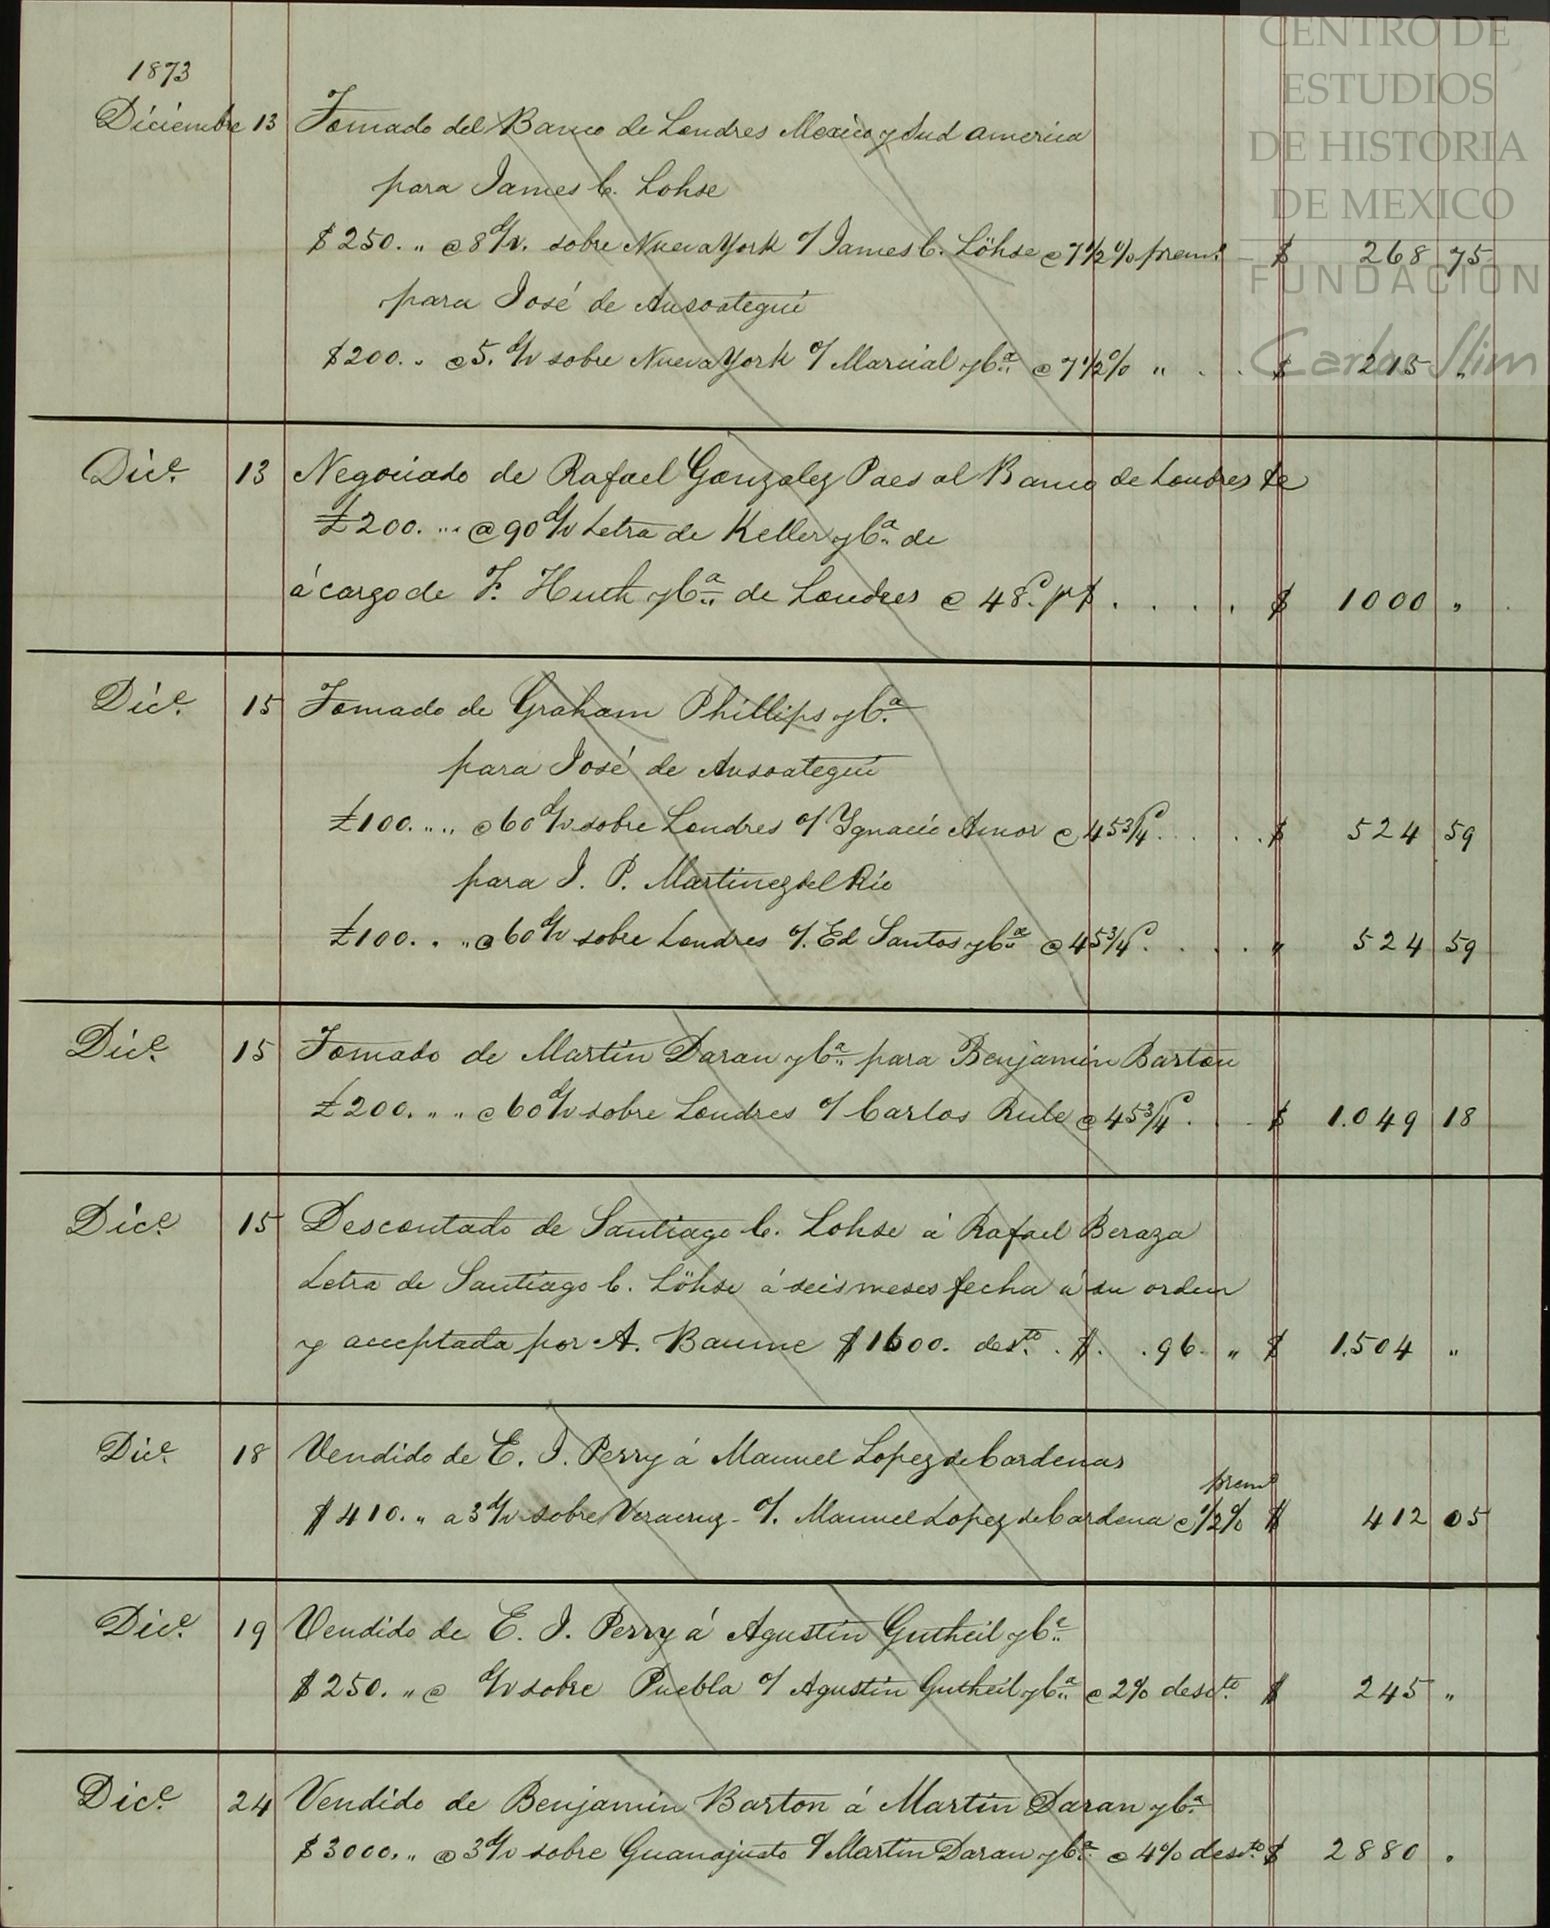 CENTRO DE
ESTUDIOS
DE HISTORIA
DE MEXICO
FUNDACION
Carlos Slim
1873
Diciembre 13 Tomado del Banco de Londres Mexico y Sud america
para James C. Lohse
$250. „ @ 8 d/v. sobre Nueva York o/ James C. Löhse @ 7 1/2 % prem.o $ 268 75
para José de Ansoategui
$200. „ @ 5. d/v sobre Nueva York o/ Marcial y Ca. @ 7 1/2 % „ . . $ 215 „
Dice. 13 Negociado de Rafael Gonzalez Paes al Banco de Londres &a
£200. „. @ 90 d/v Letra de Keller y Ca. de
á cargo de F. Huth y Ca. de Londres @ 48 d. p $ . . . . $ 1000 „
Dice. 15 Tomado de Graham Phillips y Ca.
para José de Ansoategui
£100. „ „ @ 60 d/v sobre Londres o/ Ygnacio Amor @ 45 3/4 d. . . . $ 524 59
para J. P. Martinez del Rio
£100. . „ @ 60 d/v sobre Londres o/. Ed Santos y Ca. @ 45 3/4 d. . . . „ 524 59
Dice. 15 Tomado de Martin Daran y Ca. para Benjamin Barton
£200. „ „ @ 60 d/v sobre Londres o/ Carlos Rule @ 45 3/4 d. . . $ 1.049 18
Dice. 15 Descontado de Santiago C. Lohse á Rafael Beraza
Letra de Santiago C. Löhse á seis meses fecha á su orden
y acceptada por A. Baume $1600. desto. . $. . 96. „ $ 1.504 „
Dice. 18 Vendido de E. J. Perry á Manuel Lopez de Cardenas
premo
$410. „ a 3 d/v sobre Veracruz - o/. Manuel Lopez de Cardena @ 1/2 % $ 412 05
Dice. 19 Vendido de E. J. Perry á Agustin Gutheil y Ca.
$250. „ @ d/v sobre Puebla o/ Agustin Gutheil y Ca. @ 2% descto. $ 245 „
Dice. 24 Vendido de Benjamin Barton á Martin Daran y Ca.
$3000. „ @ 3 d/v sobre Guanajuato o/ Martin Daran y Ca. @ 4% descto. $ 2880 „